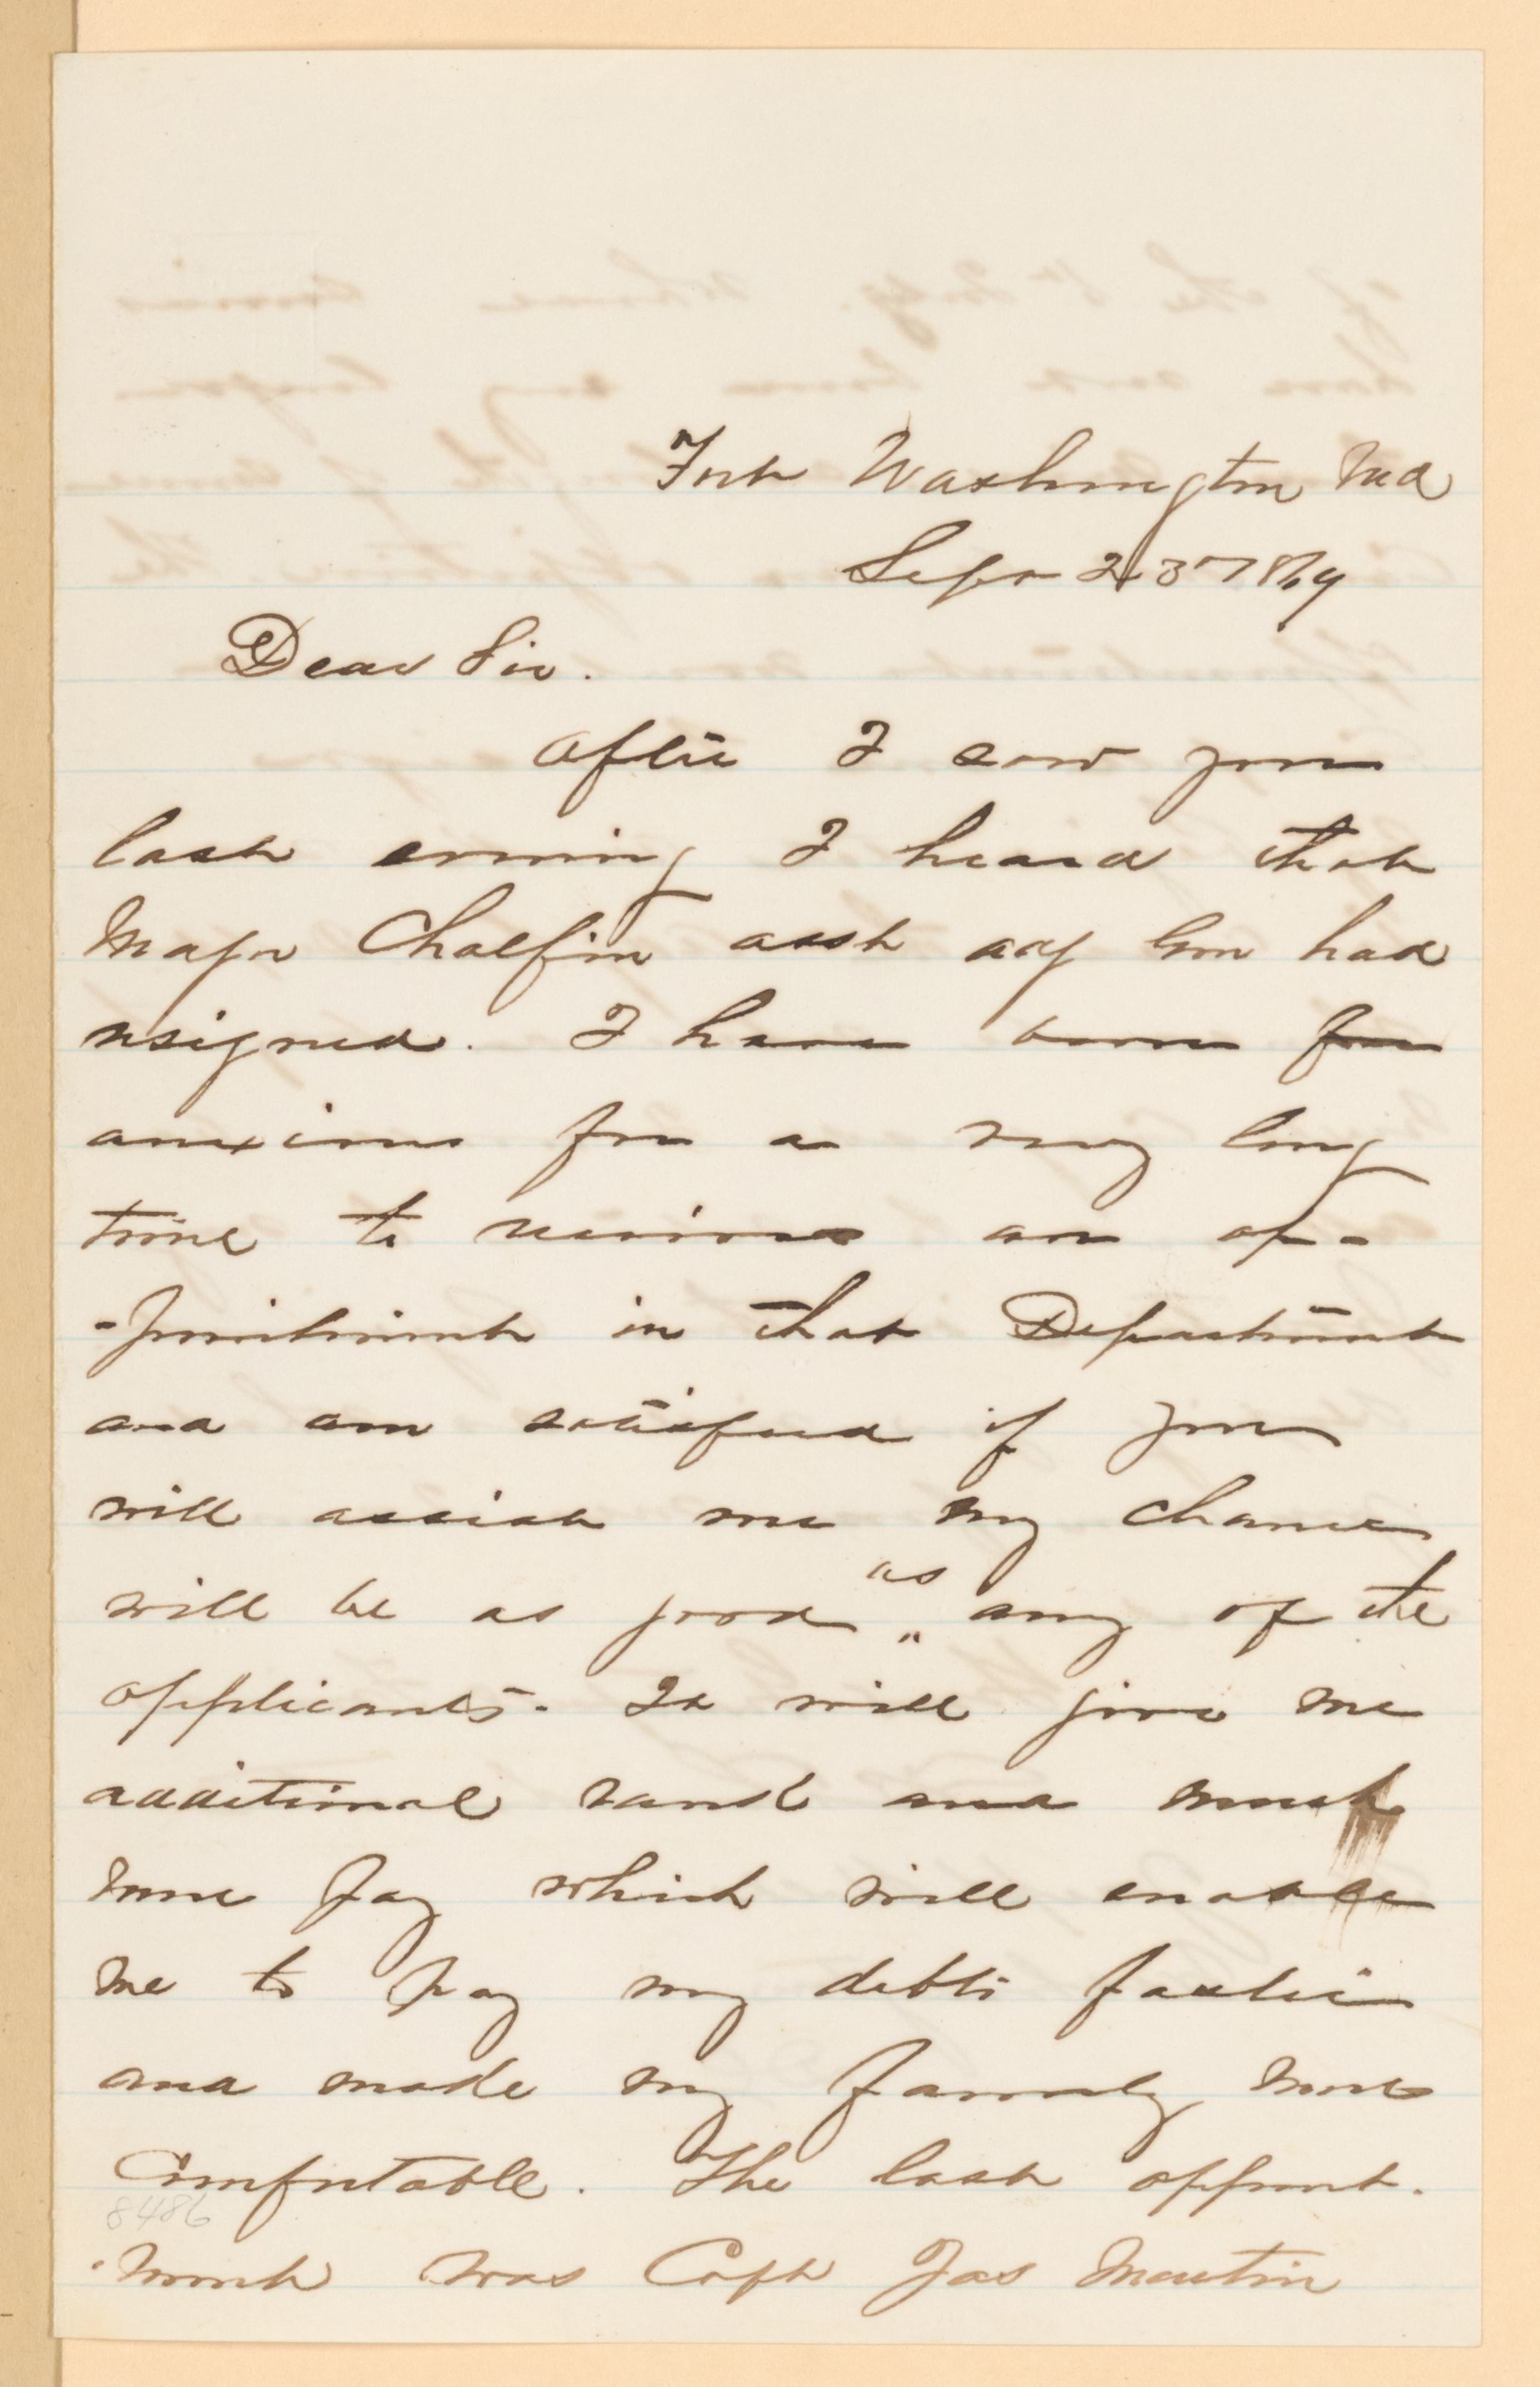 Fort Washington Md
Sept 23d 1869
Dear Sir.
After I saw you
last evening I heard that
Major Chalfin asst adj Gen had
resigned. I have been
anxious for a very long
time to receive an ap-
-pointment in that Department
and am satisfied if you
will assist me my chances
will be as good "as any of the
applicants. It will give me
additional rank and much
more pay which will enable
me to pay my debts faster
and made my family more
Comfortable. The last appoint-
-ment was Capt Jas Martin
8486